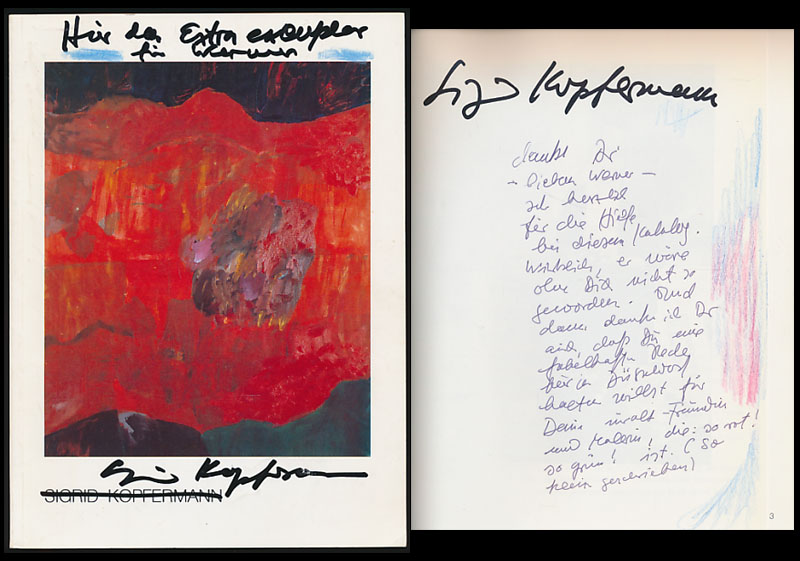 Hier das Extra exemplar
für Werner
Sigrid Kopfermann
SIGRID KOPFERMANN
Sigrid Kopfermann
danke Dir
- lieben Werner -
ich herzlich
für die Hilfe
bei diesem Katalog.
Wirklich, er wäre
ohne Dich nicht so
geworden. Und
dann danke ich Dir
auch, daß Du eine
fabelhafte Rede
hier in Düsseldorf
halten willst für
Deine uralt-Freundin
und Malerin, die: so rot!
so grün! ist. (so
klein geschrieben)
3